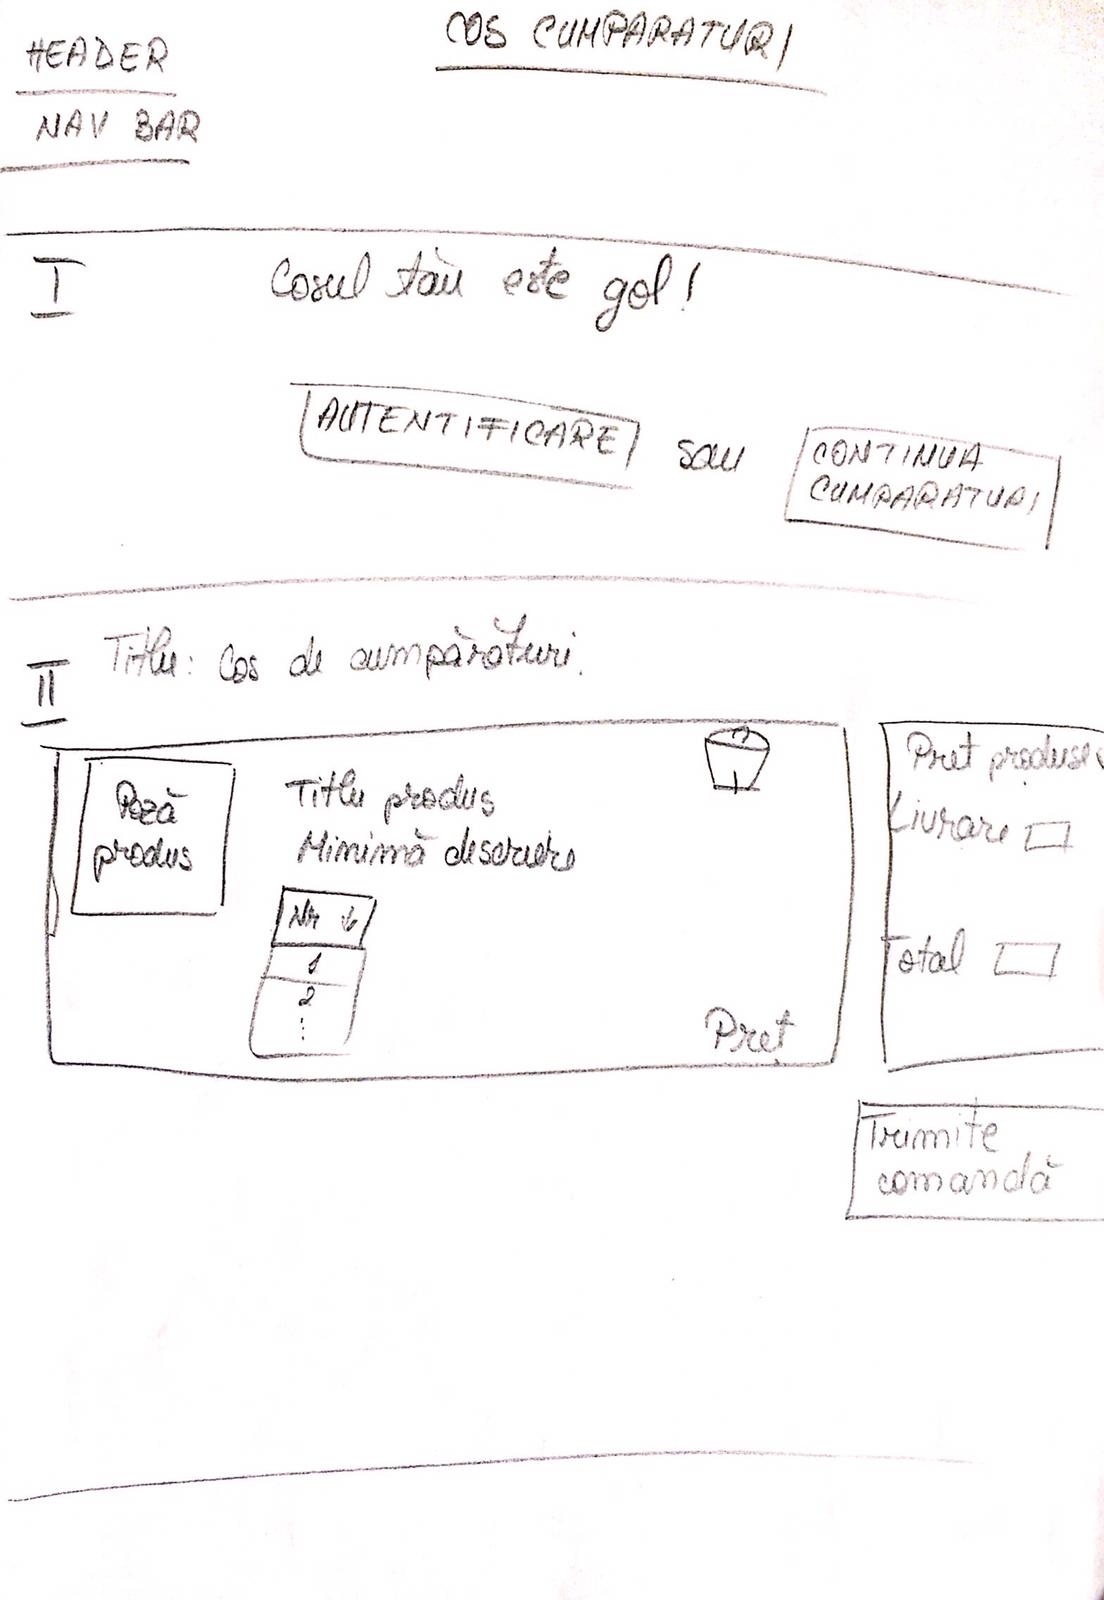 COS CUMPARATURI
HEADER
NAV BAR
I
Cosul tău este gol!
AUTENTIFICARE sau CONTINUA
CUMPARATURI
II
Titlu: Cos de cumpărături.
Poză
produs
Titlu produs
Minimă descriere
Nr ↓
1
2
⋮
Preț
Pret produse
Livrare
Total
Trimite
comandă